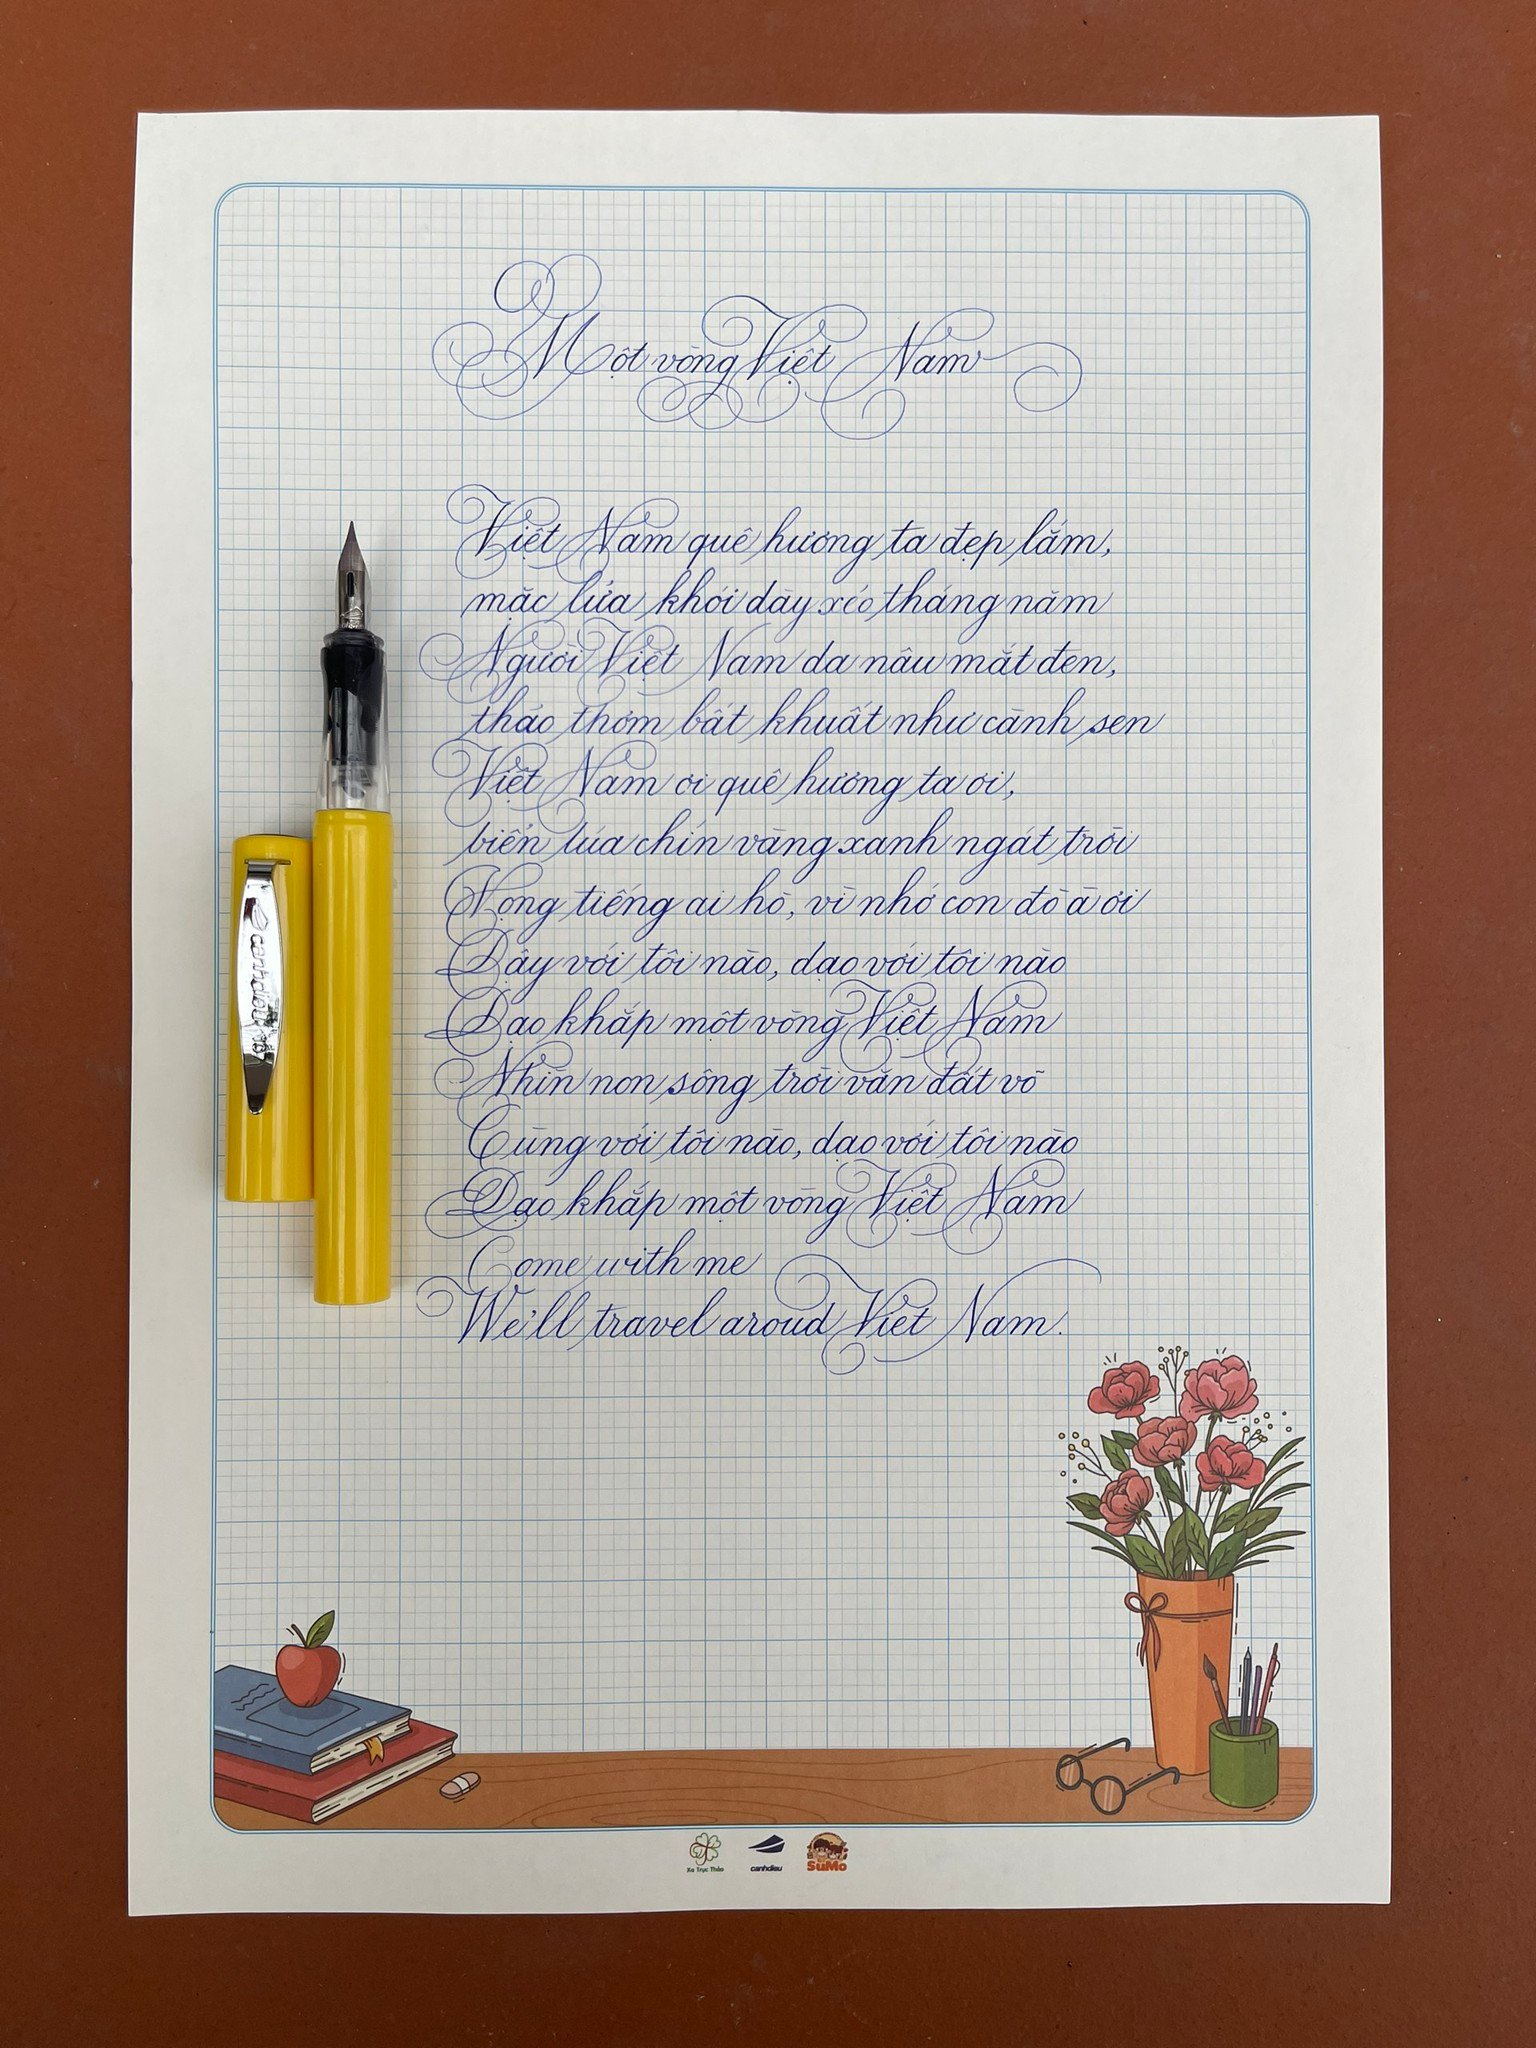 Một vòng Việt Nam
Việt Nam quê hương ta đẹp lắm,
mặc lửa khói dày xéo tháng năm
Người Việt Nam da nâu mắt đen,
thảo thơm bất khuất như cành sen
Việt Nam ơi quê hương ta ơi,
biển lúa chín vàng xanh ngát trời
Vọng tiếng ai hò, vì nhớ con đò à ơi
Dậy với tôi nào, dạo với tôi nào
Dạo khắp một vòng Việt Nam
Nhìn non sông trời văn đất võ
Cùng với tôi nào, dạo với tôi nào
Dạo khắp một vòng Việt Nam
Come with me
We'll travel aroud Việt Nam.
canhdieu
Xạ Trục Thảo
canhdieu
SuMo